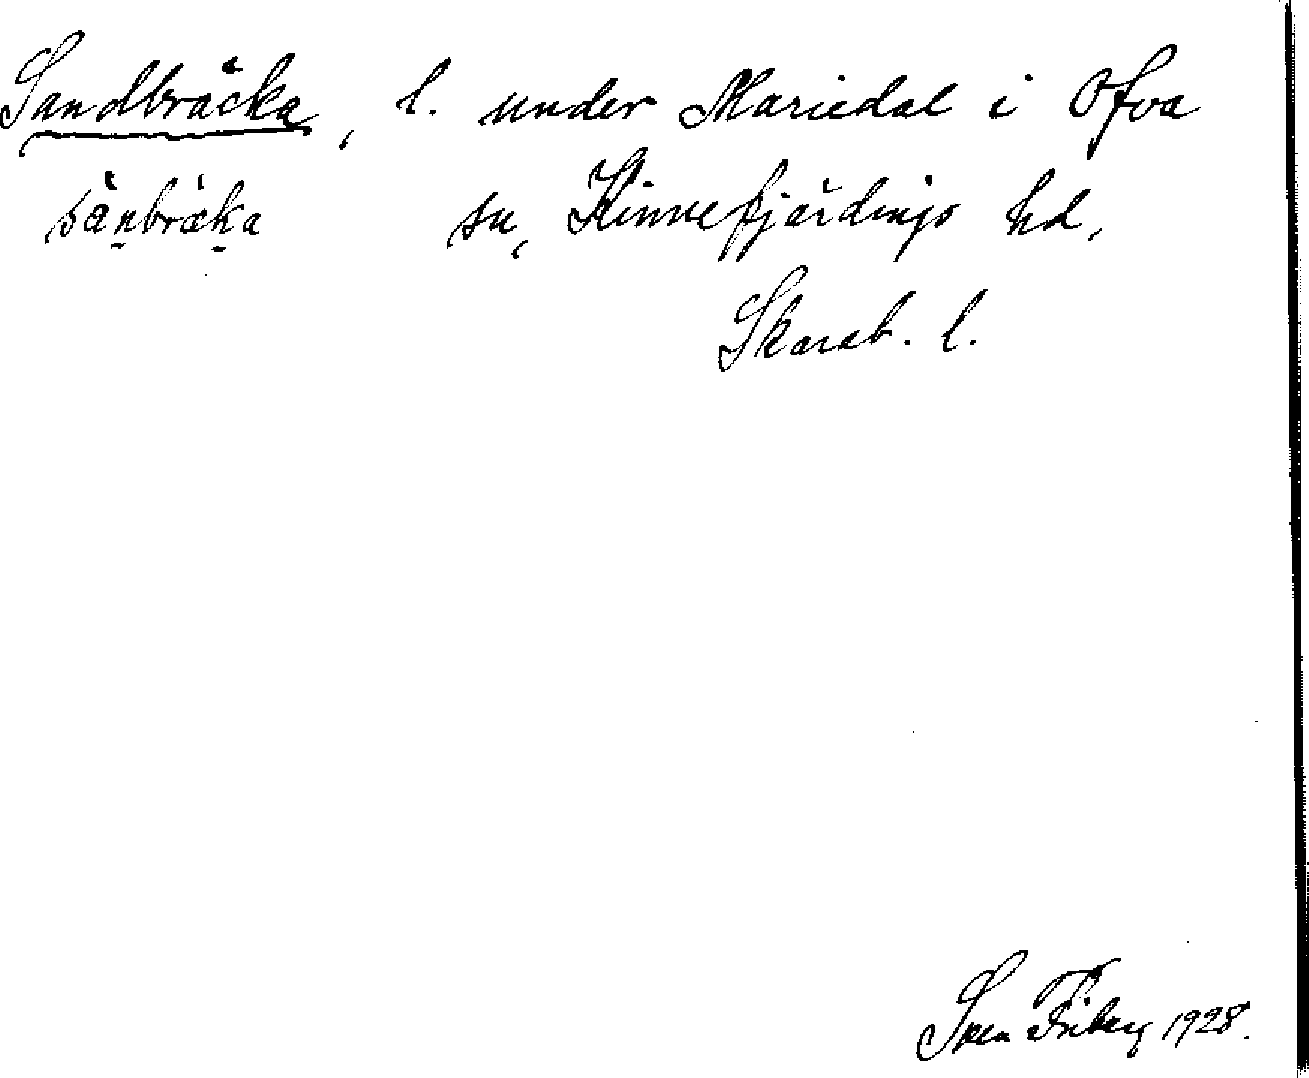 Sandbräcka, l. under Mariedal i Ova
sànbrǽka sn, Kinnefjärdings hd,
Skarab. l.
Sven Friberg 1928.